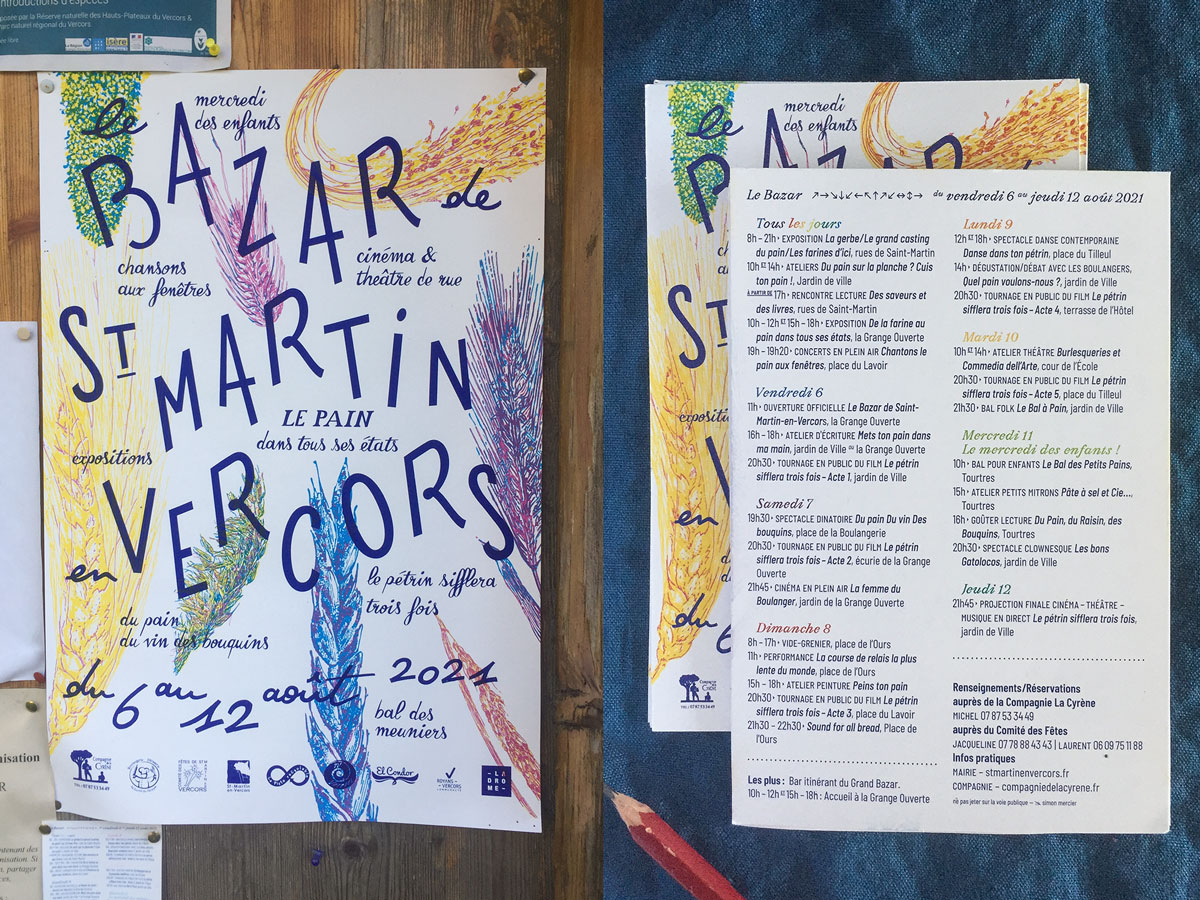 introductions d'espèces
posée par la Réserve naturelle des Hauts-Plateaux du Vercors &
arc naturel régional du Vercors
isère
le
BAZAR de
mercredi
des enfants
chansons
aux fenêtres
cinéma &
théâtre de rue
ST MARTIN
LE PAIN
dans tous ses états
expositions
en VERCORS
le pétrin sifflera
trois fois
du pain
du vin des bouquins
du 6 au 12 août 2021
bal des
meuniers
Compagnie
La Cyrène
TEL : 07 87 53 34 49
COMITÉ DES FÊTES DE ST MARTIN
VERCORS
St-Martin
en-Vercors
El Condor
ROYANS
VERCORS
COMMUNAUTÉ
LA
DRO
ME
nisation
R
tenant des
nisation. Si
n, partager
ces.
le
mercredi
des enfants
BAZAR
expositions
en
du
6
Compagnie
La Cyrène
TEL : 07 87 53 34 49
Le Bazar ↗→↘↓↙←↖↑↗↙↔↕→ du vendredi 6 au jeudi 12 août 2021
Tous les jours
8h – 21h • EXPOSITION La gerbe/Le grand casting
du pain/Les farines d'ici, rues de Saint-Martin
10h ET 14h • ATELIERS Du pain sur la planche ? Cuis
ton pain !, Jardin de ville
À PARTIR DE 17h • RENCONTRE LECTURE Des saveurs et
des livres, rues de Saint-Martin
10h – 12h ET 15h – 18h • EXPOSITION De la farine au
pain dans tous ses états, la Grange Ouverte
19h – 19h20 • CONCERTS EN PLEIN AIR Chantons le
pain aux fenêtres, place du Lavoir
Vendredi 6
11h • OUVERTURE OFFICIELLE Le Bazar de Saint-
Martin-en-Vercors, la Grange Ouverte
16h – 18h • ATELIER D'ÉCRITURE Mets ton pain dans
ma main, jardin de Ville ou la Grange Ouverte
20h30 • TOURNAGE EN PUBLIC DU FILM Le pétrin
sifflera trois fois – Acte 1, jardin de Ville
Samedi 7
19h30 • SPECTACLE DINATOIRE Du pain Du vin Des
bouquins, place de la Boulangerie
20h30 • TOURNAGE EN PUBLIC DU FILM Le pétrin
sifflera trois fois – Acte 2, écurie de la Grange
Ouverte
21h45 • CINÉMA EN PLEIN AIR La femme du
Boulanger, jardin de la Grange Ouverte
Dimanche 8
8h – 17h • VIDE-GRENIER, place de l'Ours
11h • PERFORMANCE La course de relais la plus
lente du monde, place de l'Ours
15h – 18h • ATELIER PEINTURE Peins ton pain
20h30 • TOURNAGE EN PUBLIC DU FILM Le pétrin
sifflera trois fois – Acte 3, place du Lavoir
21h30 – 22h30 • Sound for all bread, Place de
l'Ours
Les plus : Bar itinérant du Grand Bazar.
10h – 12h ET 15h – 18h : Accueil à la Grange Ouverte
Lundi 9
12h ET 18h • SPECTACLE DANSE CONTEMPORAINE
Danse dans ton pétrin, place du Tilleul
14h • DÉGUSTATION/DÉBAT AVEC LES BOULANGERS,
Quel pain voulons-nous ?, jardin de Ville
20h30 • TOURNAGE EN PUBLIC DU FILM Le pétrin
sifflera trois fois – Acte 4, terrasse de l'Hôtel
Mardi 10
10h ET 14h • ATELIER THÉÂTRE Burlesqueries et
Commedia dell'Arte, cour de l'École
20h30 • TOURNAGE EN PUBLIC DU FILM Le pétrin
sifflera trois fois – Acte 5, place du Tilleul
21h30 • BAL FOLK Le Bal à Pain, jardin de Ville
Mercredi 11
Le mercredi des enfants !
10h • BAL POUR ENFANTS Le Bal des Petits Pains,
Tourtres
15h • ATELIER PETITS MITRONS Pâte à sel et Cie...,
Tourtres
16h • GOÛTER LECTURE Du Pain, du Raisin, des
Bouquins, Tourtres
20h30 • SPECTACLE CLOWNESQUE Les bons
Gatolocos, jardin de Ville
Jeudi 12
21h45 • PROJECTION FINALE CINÉMA – THÉÂTRE –
MUSIQUE EN DIRECT Le pétrin sifflera trois fois,
jardin de Ville
Renseignements/Réservations
auprès de la Compagnie La Cyrène
MICHEL 07 87 53 34 49
auprès du Comité des Fêtes
JACQUELINE 07 78 88 43 43 | LAURENT 06 09 75 11 88
Infos pratiques
MAIRIE – stmartinenvercors.fr
COMPAGNIE – compagniedelacyrene.fr
ne pas jeter sur la voie publique – simon mercier